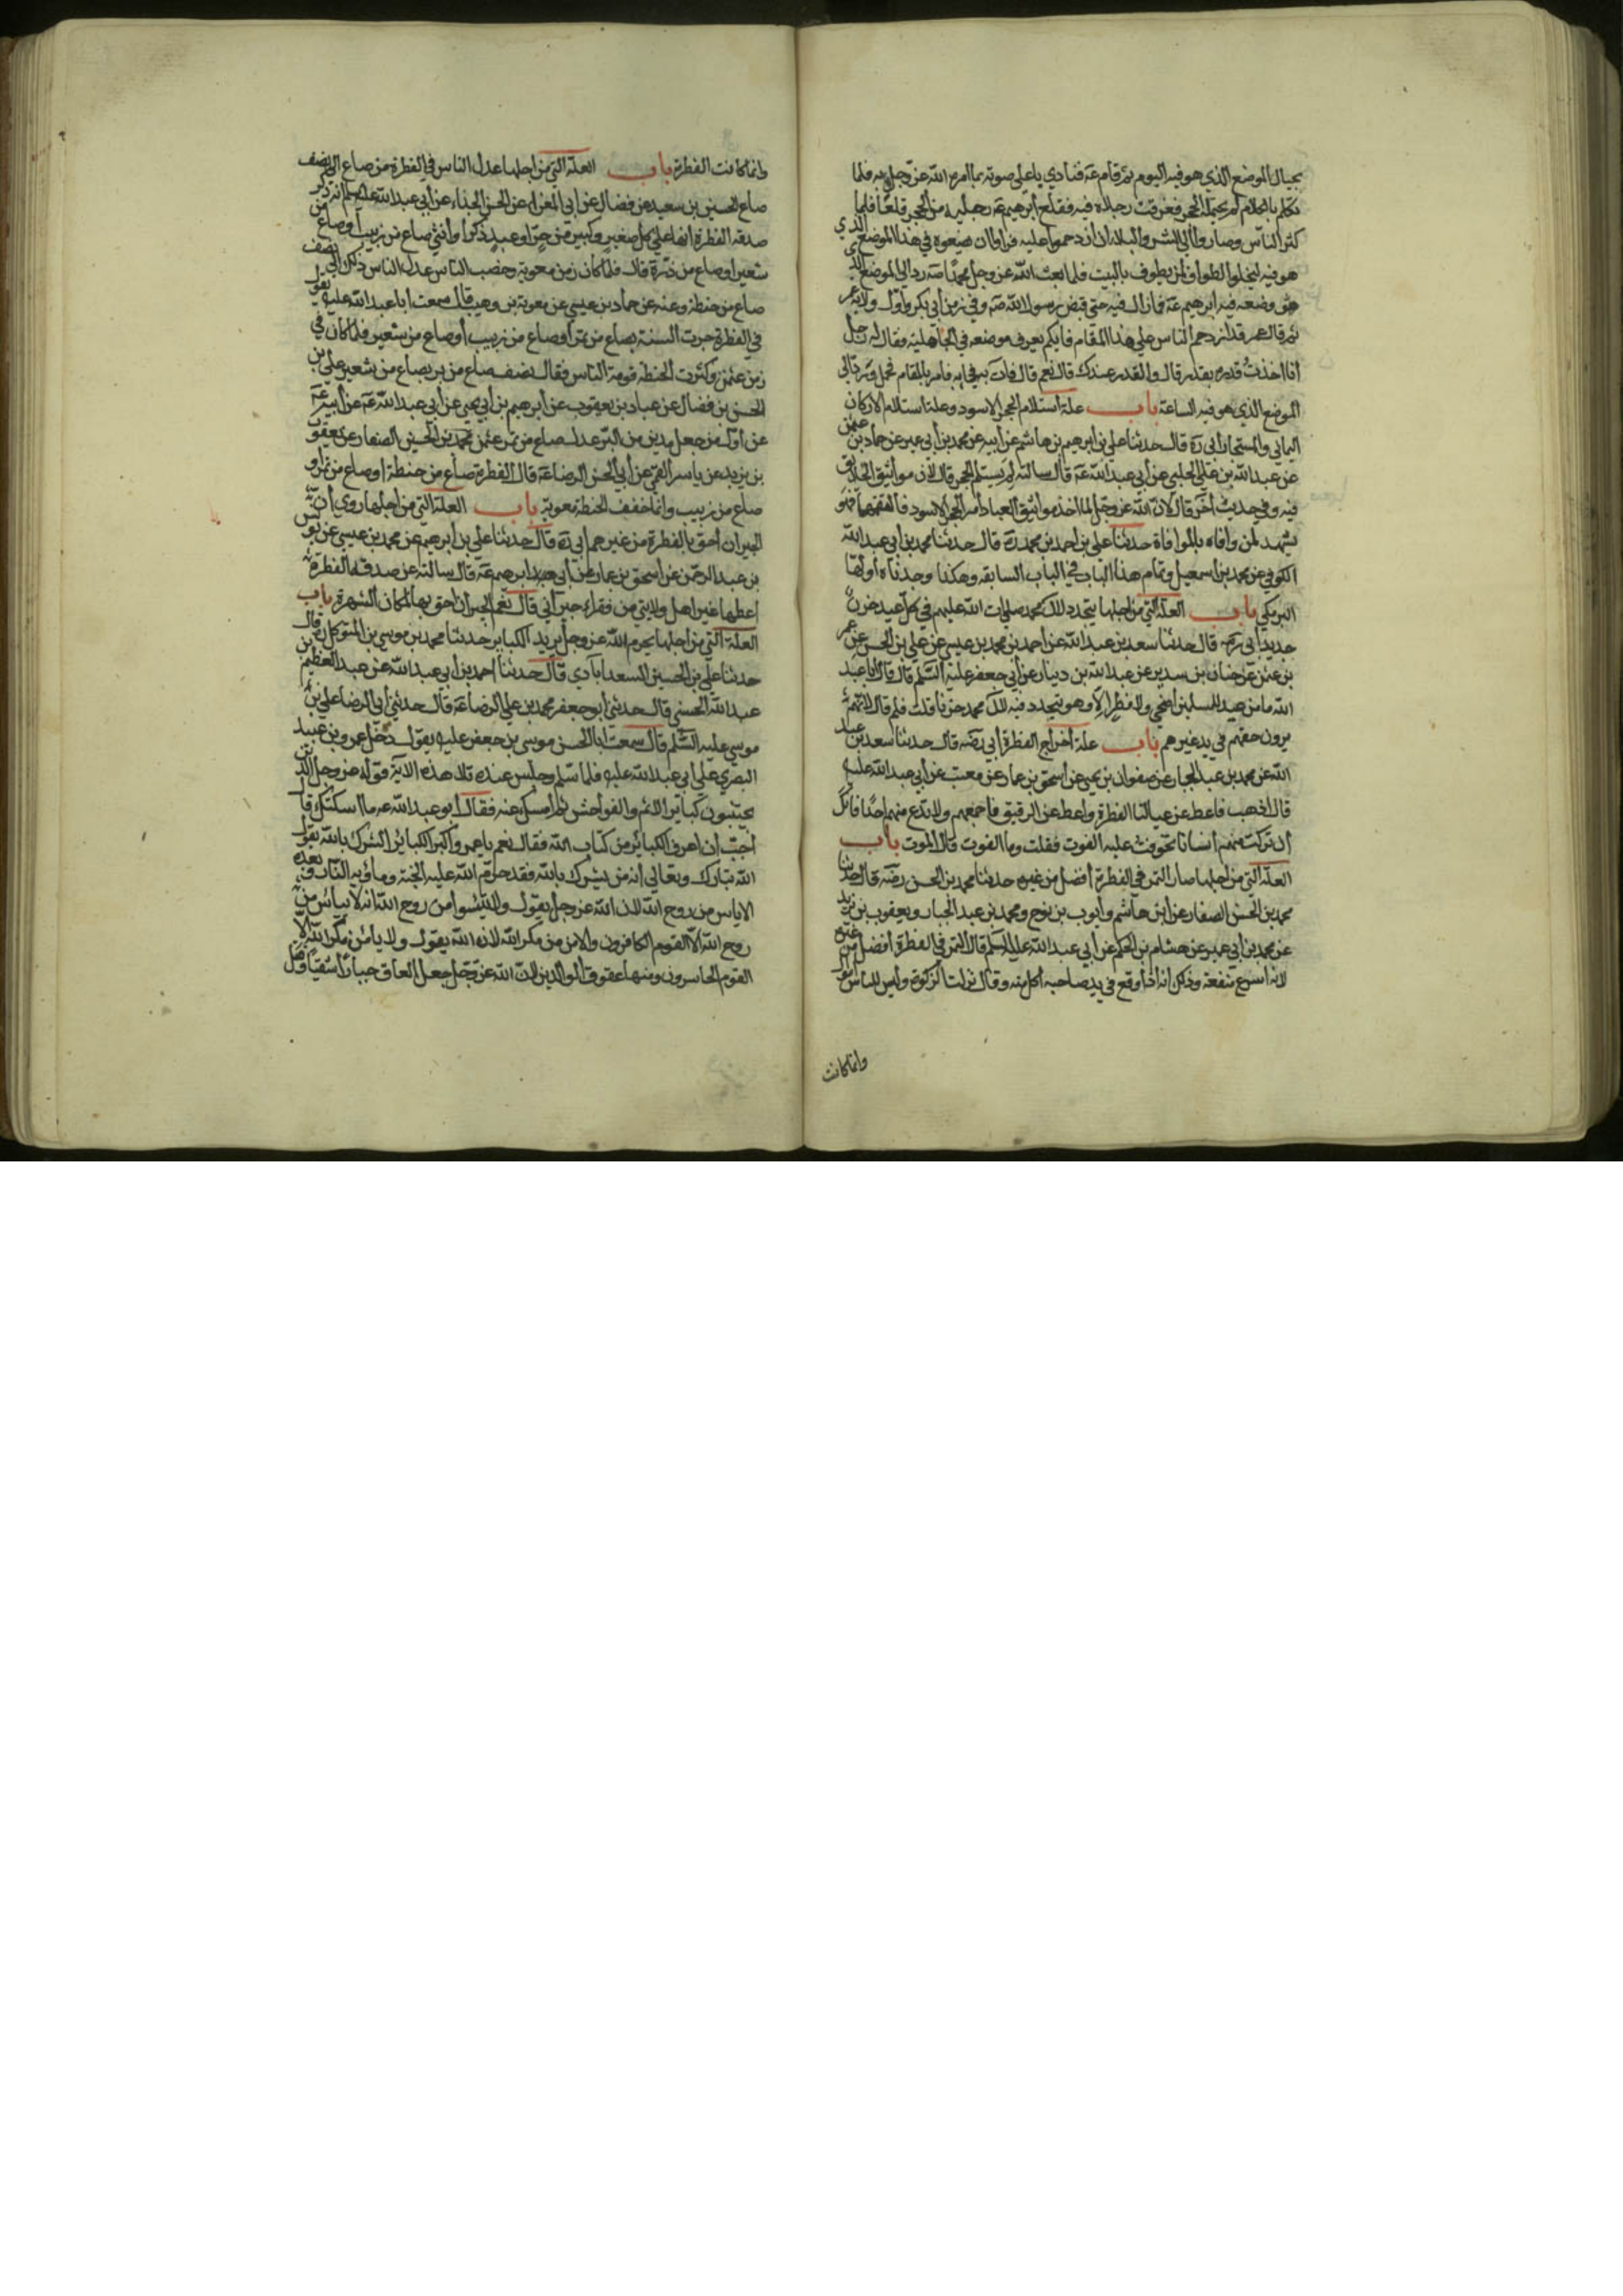 بحيال الموضع الذي هو فيه اليوم ثم قام عه فنادي باعلي صوته بما امره الله عز وجل به فلما
تكلم بالكلام لم يحتمله الحجر فغرقت رجلاه فيه فقلع ابرهيم عه رجليه من الحجر قلعا فلما
كثر الناس وصاروا الي الشر والبلاء ان ازدحموا عليه فراوا ان يضعوه في هذا الموضع الذي
هو فيه ليخلوا الطواف لمن يطوف بالبيت فلما بعث الله عز وجل محمدا صه رده الي الموضع الذي
وضعه فيه ابرهيم عه فما زال فيه حتي قبض رسول الله صه وفي زمن ابي بكر واول ولاية عمر
ثم قال عمر قد ازدحم الناس علي هذا المقام فايكم يعرف موضعه في الجاهلية فقال له رجل
انا اخذت قدره بقدر قال والقدر عندك قال نعم قال فات به فجاء به فامر بالمقام فحمل ورد الي
الموضع الذي هو فيه الساعة باب علة استلام الحجر الاسود وعلة استلام الاركان
اليماني والمستجار ابي ره قال حدثنا علي بن ابرهيم بن هاشم عن ابيه عن محمد بن ابي عمير عن حماد بن عثمن
عن عبد الله بن علي الحلبي عن ابي عبد الله عه قال سالته لم يستلم الحجر قال لان مواثيق الخلائق
فيه وفي حديث آخر قال لان الله عز وجل لما اخذ مواثيق العباد امر الحجر الاسود فالتقمها فهو
يشهد لمن وافاه بالموافاة حدثنا علي بن احمد بن محمد ره قال حدثنا محمد بن ابي عبد الله
الكوفي عن محمد بن اسمعيل وتمام هذا الباب في الباب السابقه وهكذا وجدناه اولها
البرمكي باب العلة التي من اجلها يتجدد لال محمد صلوات الله عليهم في كل عيد حزن
جديد ابي رضه قال حدثنا سعد بن عبد الله عن احمد بن محمد بن عيسي عن علي بن الحسن عن عمر
بن عثمن عن حنان بن سدير عن عبد الله بن دينار عن ابي جعفر عليه السلم قال قال يا با عبد
الله ما من عيد للمسلمين اضحي ولا فطر الا وهو يتجدد فيه لال محمد حزنا قلت فلم قال لانهم
يرون حقهم في يد غيرهم باب علة اخراج الفطرة ابي رضه قال حدثنا سعد بن عبد
الله عن محمد بن عبد الجبار عن صفوان بن يحيي عن اسحق بن عمار عن معتب عن ابي عبد الله عليه
قال اذهب فاعط عن عيالنا الفطرة واعط عن الرقيق فاجمعهم ولا تدع منهم احدا فانك
ان تركت منهم انسانا تخوفت عليه الفوت فقلت وما الفوت قال الموت باب
العلة التي من اجلها صار التمر في الفطرة افضل من غيره حدثنا محمد بن الحسن رضه قال حدثنا
محمد بن الحسن الصفار عن ابن هاشم وايوب بن نوح ومحمد بن عبد الجبار ويعقوب بن يزيد
عن محمد بن ابي عمير عن هشام بن الحكم عن ابي عبد الله عليه السلم قال التمر في الفطرة افضل من غيره
لانه اسرع منفعة وذلك انه اذا وقع في يد صاحبه اكل منه وقال نزلت الزكوة وليس للناس اموال
وانما كانت
وانما كانت الفطرة باب العلة التي من اجلها عدل الناس في الفطرة من صاع الي نصف
صاع الحسين بن سعيد عن فضال عن ابي المغرا عن الحسن الحذاء عن ابي عبد الله عليه السلم انه ذكر
صدقة الفطرة انها علي كل صغير وكبير من حر او عبد ذكر او انثي صاع من زبيب او صاع من
شعير او صاع من ذرة قال فلما كان زمن معوية وخصب الناس عدل الناس ذلك الي نصف
صاع من حنطة وعنه عن حماد بن عيسي عن معوية بن وهب قال سمعت ابا عبد الله عليه يقول
في الفطرة جرت السنة بصاع من تمر او صاع من زبيب او صاع من شعير فلما كان في
زمن عثمن وكثرت الحنطة قومه الناس فقال نصف صاع من بر بصاع من شعير علي بن
الحسن بن فضال عن عباد بن يعقوب عن ابرهيم بن ابي يحيي عن ابي عبد الله عه عن ابيه عه
عن اول من جعل مدين من البر عدل صاع من تمر عثمن محمد بن الحسين الصفار عن يعقوب
بن يزيد عن ياسر القمي عن ابي الحسن الرضا عه قال الفطرة صاع من حنطة او صاع من تمر او
صاع من زبيب وانما خفف الحنطة معوية باب العلة التي من اجلها روي ان
الجيران احق بالفطرة من غيرهم ابي ره قال حدثنا علي بن ابرهيم عن محمد بن عيسي عن يونس
بن عبد الرحمن عن اسحق بن عمار عن ابي ابرهيم عه قال سالته عن صدقة الفطرة
اعطها غير اهل ولايتي من فقراء جيراني قال نعم الجيران احق بها لمكان الشهرة باب
العلة التي من اجلها يحرم الله عز وجل الكباير حدثنا محمد بن موسي بن المتوكل ره قال
حدثنا علي بن الحسين السعدابادي قال حدثنا احمد بن ابي عبد الله عن عبد العظيم بن
عبد الله الحسني قال حدثني ابو جعفر محمد بن علي الرضا عه قال حدثني ابي الرضا علي بن
موسي عليه السلم قال سمعت ابا الحسن موسي بن جعفر عليه يقول دخل عمرو بن عبيد
البصري علي ابي عبد الله عليه فلما سلم وجلس عنده تلا هذه الاية قوله عز وجل الذين
يجتنبون كبائر الاثم والفواحش ثم امسك عنه فقال ابو عبد الله عه ما اسكتك قال
احب ان اعرف الكبائر من كتاب الله فقال نعم يا عمرو اكبر الكبائر الشرك بالله يقول
الله تبارك وتعالي انه من يشرك بالله فقد حرم الله عليه الجنة وماويه النار وبعده
الاياس من روح الله لان الله عز وجل يقول ولا تيئسوا من روح الله انه لا ييأس من
روح الله الا القوم الكافرون والامن من مكر الله لان الله يقول ولا يامن مكر الله الا
القوم الخاسرون ومنها عقوق الوالدين لان الله عز وجل جعل العاق جبارا شقيا وقتل